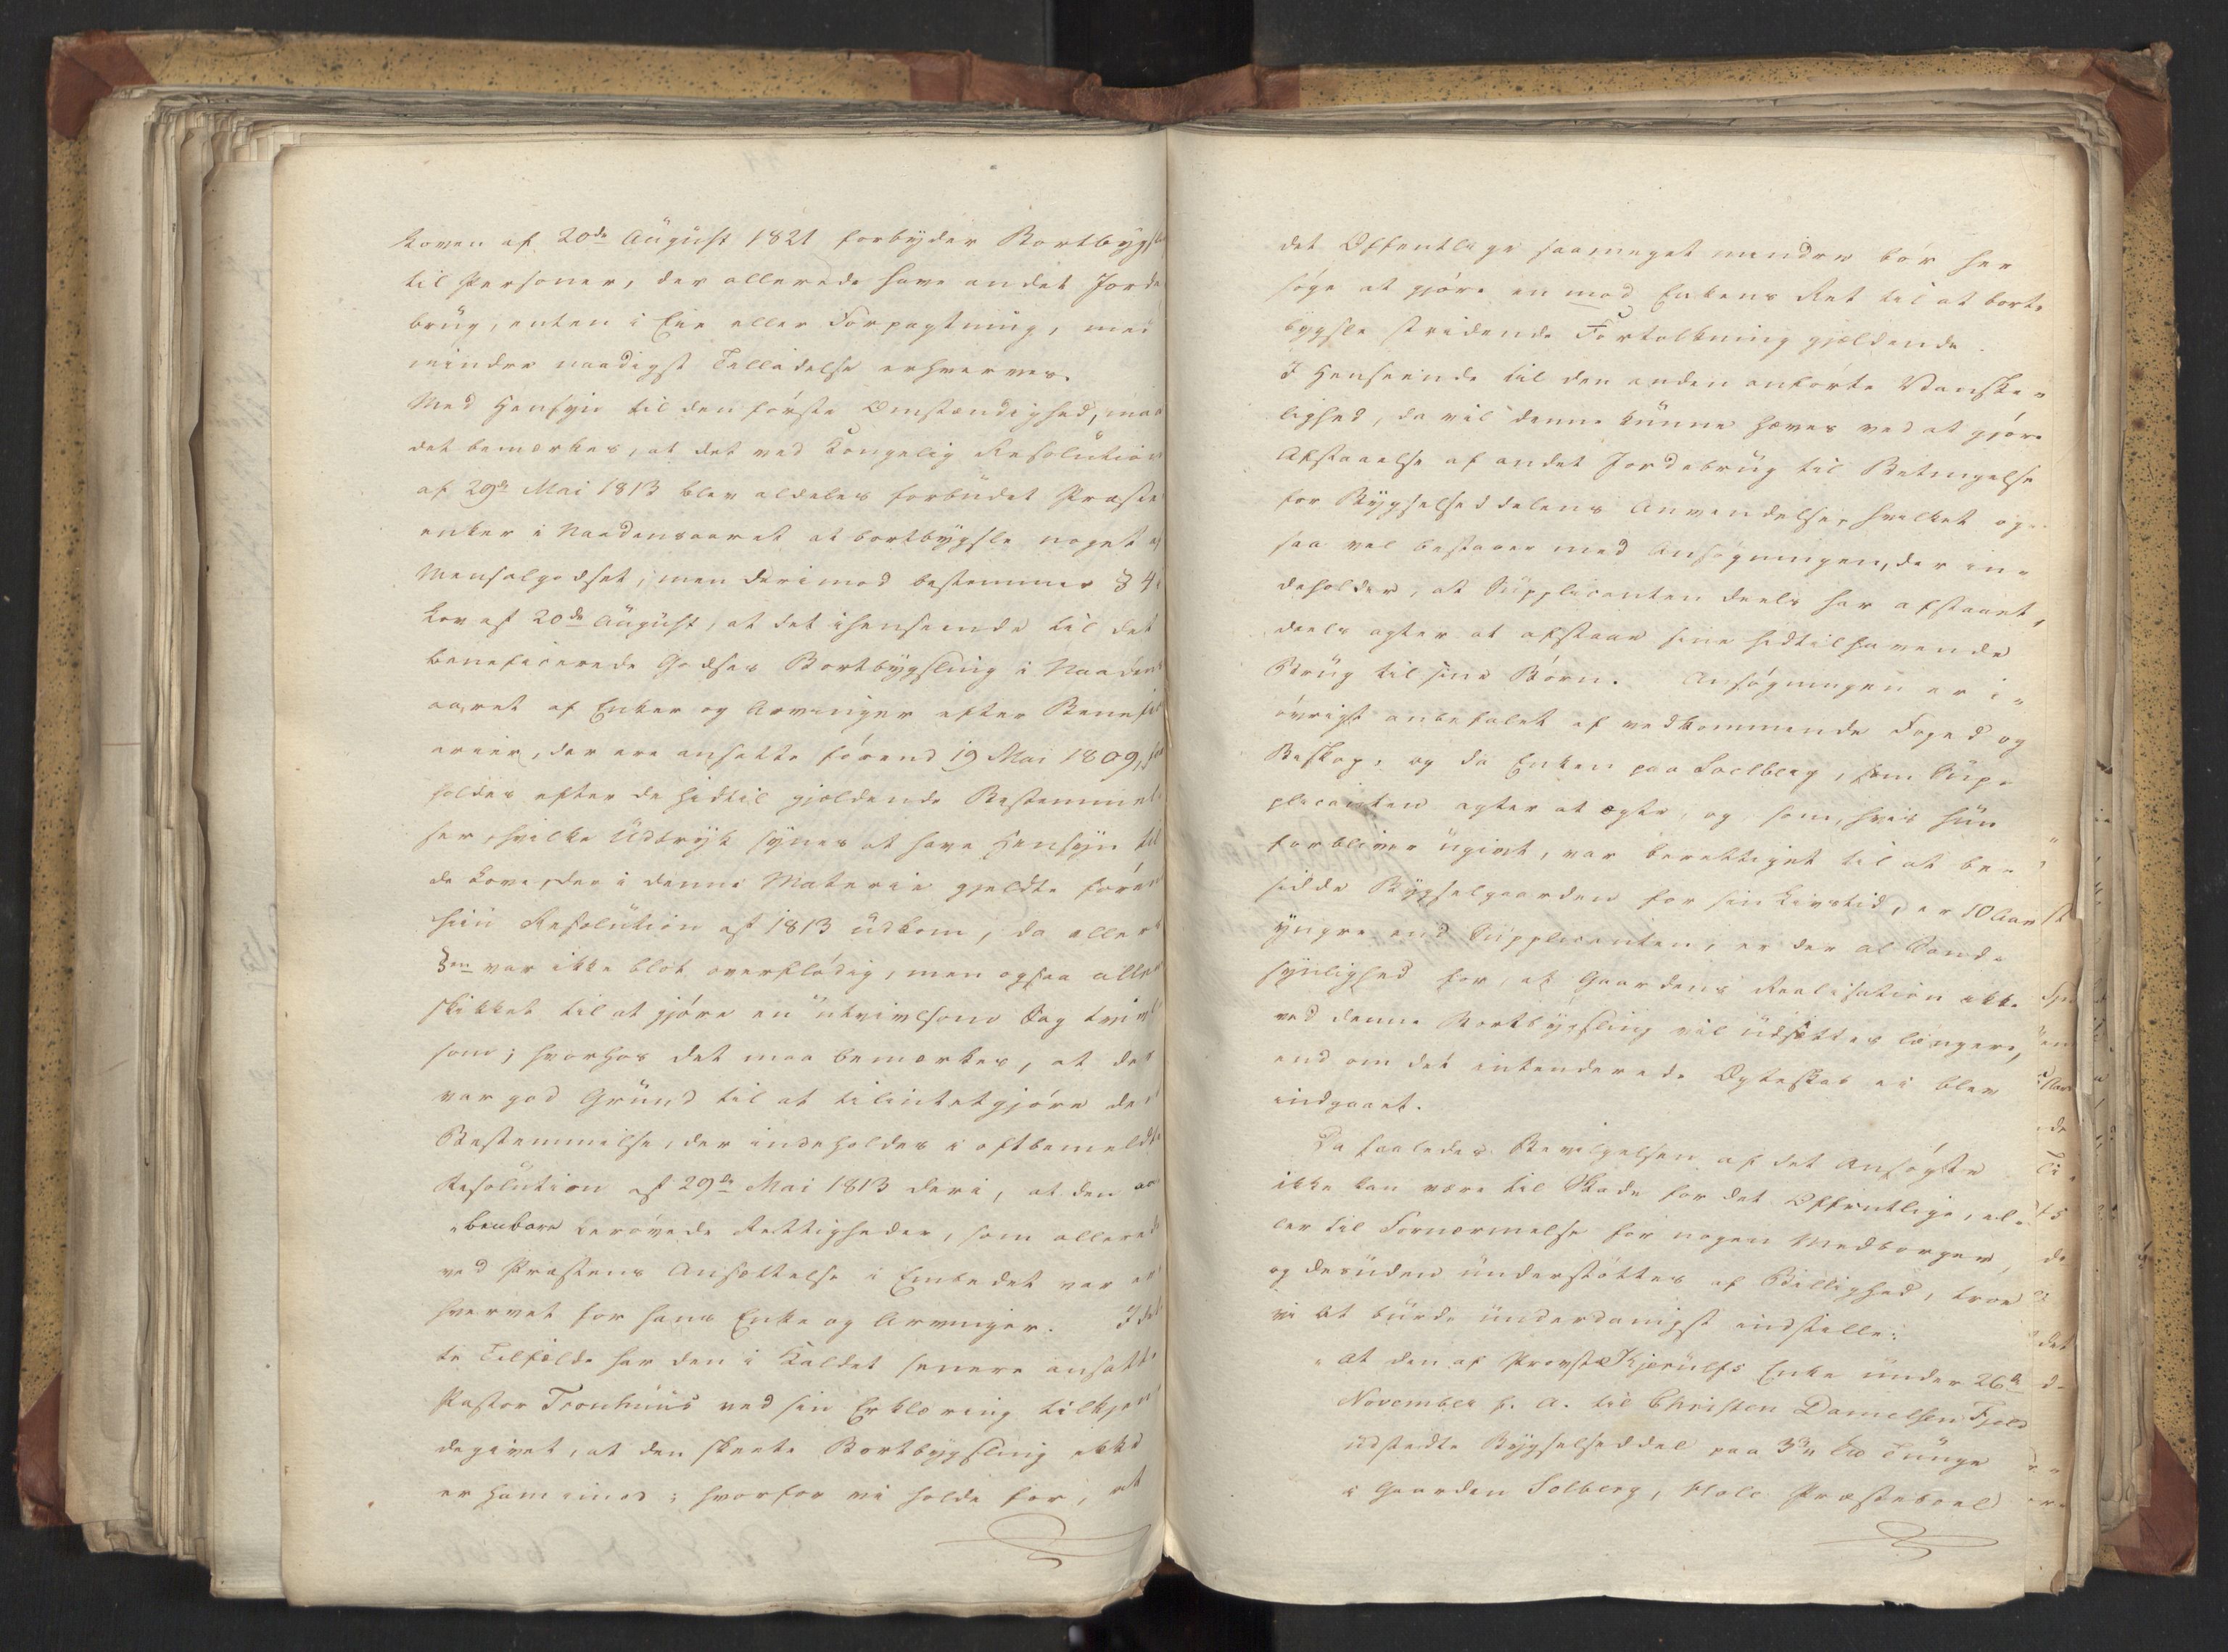 Loven af 20de August 1821 forbyder Bortbygsl
til Personer, der allerede have andet Jorde
brug, enten i Eie eller Forpagtning, med
mindre naadigst Tilladelse erhverves.
Med Hensyn til den förste Omstændighed, maa
det bemærkes, at det ved Kongelig Resolution
af 29de Mai 1813 blev aldeles forbudet Præste
enker i Naadensaaret at bortbygsle noget af
Mensalgodset; men derimod bestemmer § 4 i
Lov af 20de August, at det ihenseende til det
beneficerede Godses Bortbygsling i Naadens
aaret af Enker og Arvinger efter Benefici
arier, der ere ansatte förend 19 Mai 1809, for
holdes efter de hidtil gjældende Bestemmel
ser, hvilke Udtryk synes at have Hensyn til
de Love, der i denne Materie gjeldte foren
hiin Resolution af 1813 udkom, da ellers
§en var ikke blot overflödig, men ogsaa aller
skikket til at gjöre en utvivlsom Sag tvivl
som; hvorhos det maa bemærkes, at der
var god Grund til at tilintetgjöre den
Bestemmelse, der indeholdes i oftbemeldte
Resolution af 29de Mai 1813 deri, at den aa
"benbare berövede Rettigheder, som allerede
ved Præstens Ansættelse i Embedet var er
hvervet for hans Enke og Arvinger. I det
te Tilfælde har den i Kaldet senere ansatte
Pastor Tronhuus ved sin Erklæring tilkjen
degivet, at den skeete Bortbygsling ikke
er ham imod; hvorfor vi holde for, at
det Offentlige saameget mindre bör her
söge at gjöre en mod Enkens Ret til at bort-
bygsle stridende Fortolkning gjældende.
I Henseende til den anden anförte Vanske-
lighed, da vil denne kunne hæves ved at gjöre
Afstaaelse af andet Jordebrug til Betingelse
for Bygselseddelens Anvendelse, hvilket og
saa vel bestaaer med Ansögningen, der in-
deholder, at Supplicanten deels har afstaaet,
deels agter at afstaae sine hidtilhavende
Brug til sine Börn. Ansögningen er i-
övrigt anbefalet af vedkommende Foged og
Biskop, og da Enken paa Soelberg, som Sup-
plicanten agter at ægte, og som, hvis hun
forbliver ugivt, var berettiget til at be-
sidde Bygselgaarden for sin Livstid, er 10 Aar
yngre end Supplicanten, er der al Sand-
synlighed for, at Gaardens Realisation ikke
ved denne Bortbygsling vil udsættes længere,
end om det intenderede Ægteskab ei blev
indgaaet.
Da saaledes Bevilgelsen af det Ansögte
ikke kan være til Skade for det Offentlige, el-
ler til Fornærmelse for nogen Medborger,
og desuden understöttes af Billighed, troe
vi at burde underdanigst indstille:
"at den af Provst Kjerulfs Enke under 26de
November f. A. til Christen Danielsen Fjeld
udstedte Bygselseddel paa 3 Tunge
i Gaarden Solberg, Hole Præstebord